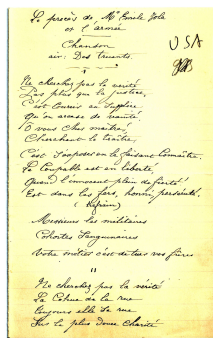 Le procès de Mr Emile Zola
et l'armée
Chanson
air: Des truands.
USA
Ne cherchez pas la vérité
Pas plus que la justice,
C'est courir au supplice
Qu'on accuse de vanité
O vous cher maître,
Cherchant le traître,
C'est s'exposer en le faisant connaître.
Le Coupable est en liberté,
Quand l'innocent plein de fierté
Est dans les fers, honni, persécuté.
(Refrain)
Messieurs les militaires
Cohortes Sanguinaires
Votre métier c'est de tuer vos frères
II
Ne cherchez pas la vérité
La Cohue de la rue
Toujours elle
Sur la plus douce Charité